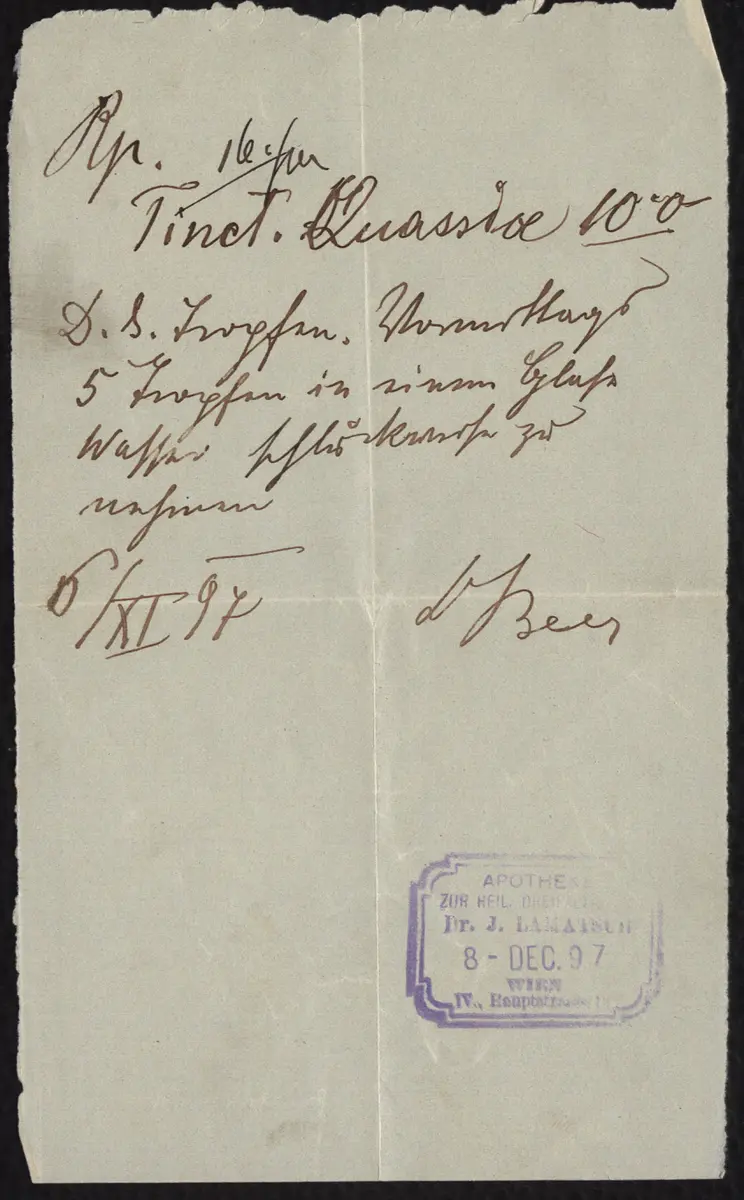 Rp.
Tinct. Quassiae 10·0
D. S. Tropfen. Vormittags
5 Tropfen in einem Glase
Wasser schluckweise zu
nehmen
6/XI 97
Dr Beer
APOTHEKE
ZUR HEIL. DREIFALTIGKEIT
Dr. J. LAMATSCH
8 - DEC. 97
WIEN
IV., Hauptstrasse